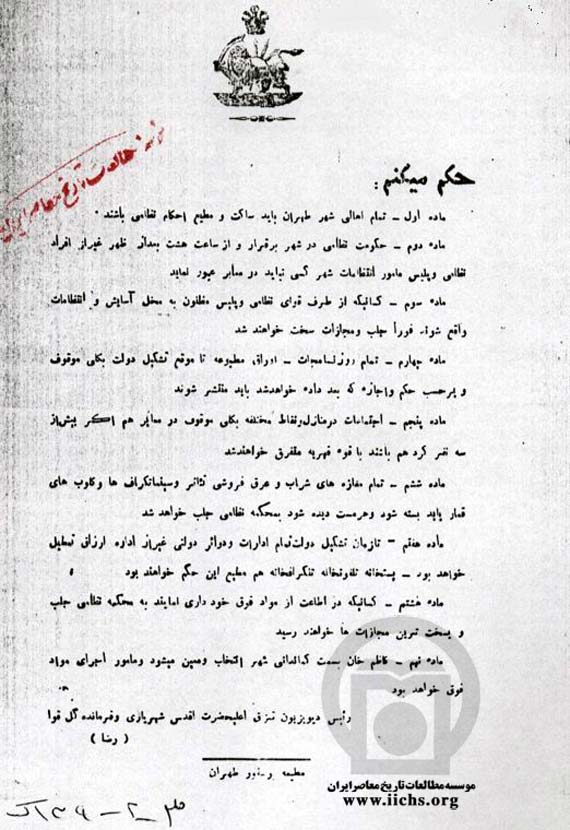 حکم میکنم :
ماده اول – تمام اهالی شهر طهران باید ساکت و مطیع احکام نظامی باشند
ماده دوم – حکومت نظامی در شهر برقرار و از ساعت هشت بعداز ظهر غیراز افراد
نظامی و پلیس مامور انتظامات شهر کسی نباید در معابر عبور نماید
ماده سوم – کسانیکه از طرف قوای نظامی و پلیس مظنون به مخل آسایش و انتظامات
واقع شوند فوراً جلب و مجازات سخت خواهند شد
ماده چهارم – تمام روزنامجات – اوراق مطبوعه تا موقع تشکیل دولت بکلی موقوف
و برحسب حکم واجازه که بعد داده خواهدشد باید منتشر شوند
ماده پنجم – اجتماعات در منازل ونقاط مختلفه بکلی موقوف در معابر هم اگر بیش از
سه نفر گرد هم باشند با قوه قهریه متفرق خواهندشد
ماده ششم – تمام مغازه های شراب و عرق فروشی تئاتر و سینماتگراف ها وکلوب های
قمار باید بسته شود وهرمست دیده شود بمحکمه نظامی جلب خواهد شد
ماده هفتم – تازمان تشکیل دولت تمام ادارات ودوائر دولتی غیراز اداره ارزاق تعطیل
خواهد بود – پستخانه تلفونخانه تلگرافخانه هم مطیع این حکم خواهند بود
ماده هشتم – کسانیکه در اطاعت از مواد فوق خود داری نمایند به محکمه نظامی جلب
و بسخت ترین مجازات ها خواهند رسید
ماده نهم – کاظم خان بسمت کماندانی شهر انتخاب ومعین میشود ومامور اجرای مواد
فوق خواهد بود
رئیس دیویزیون قزاق اعلیحضرت اقدس شهریاری وفرمانده کل قوا
( رضا )
مطبعه طهران
موسسه مطالعات تاریخ معاصر ایران
www.iichs.org